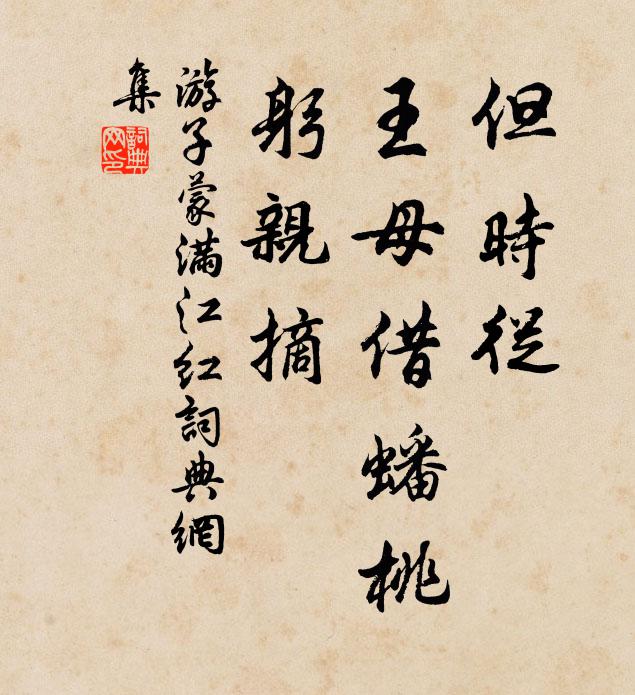 但時從
王母借蟠桃
躬親摘
游子蒙滿江红詞典網
集
詞典
网印